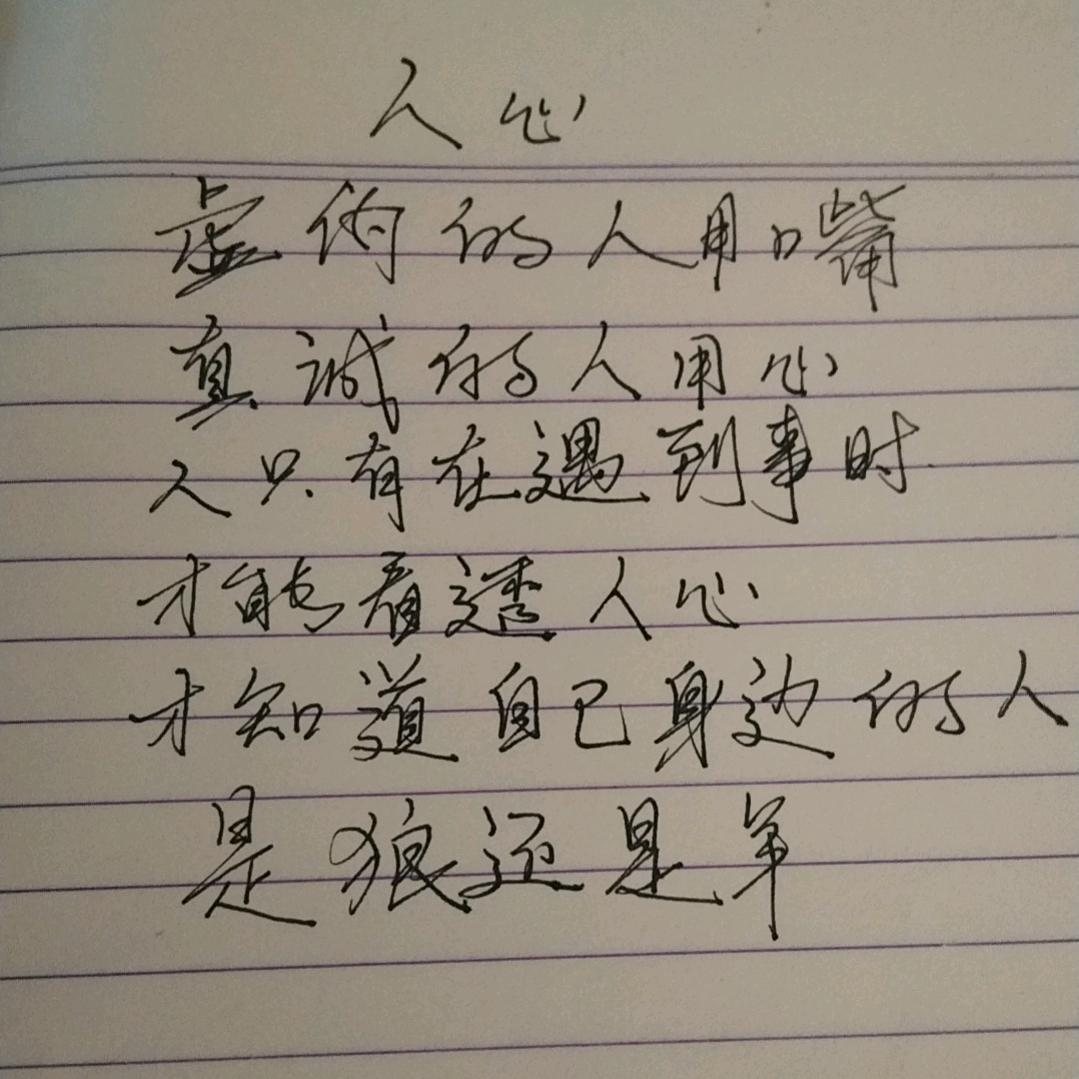 人心
虚伪的人用嘴
真诚的人用心
人只有在遇到事时
才能看透人心
才知道自己身边的人
是狼还是羊